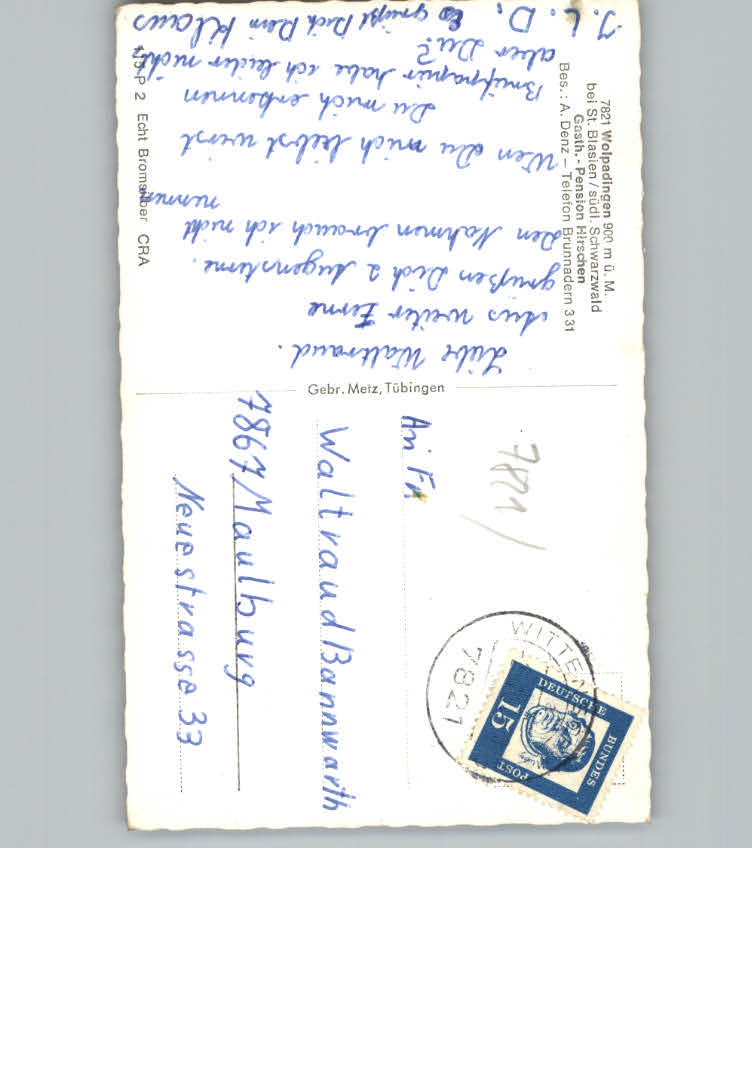 7821 Wolpadingen 900 m ü. M.
bei St. Blasien / südl. Schwarzwald
Gasth.- Pension Hirschen
Bes.: A. Denz – Telefon Brunnadern 3 31
Liebe Waltraud.
Aus weiter Ferne
grüßen Dich 2 Augensterne.
Den Nahmen brauch ich nicht
nennen
Wen Du mich liebst wirst
Du mich erkennen
Briefpapier habe ich leider nicht
aber Du?
I. L. D. Es grüßt Dich Dein Klaus
P 2 Echt Bromsilber CRA
Gebr. Metz, Tübingen
7821
WITTE
7821
DEUTSCHE
BUNDES
POST
15
An Fr.
Waltraud Bannwarth
7867 Maulburg
Neuestrasse 33